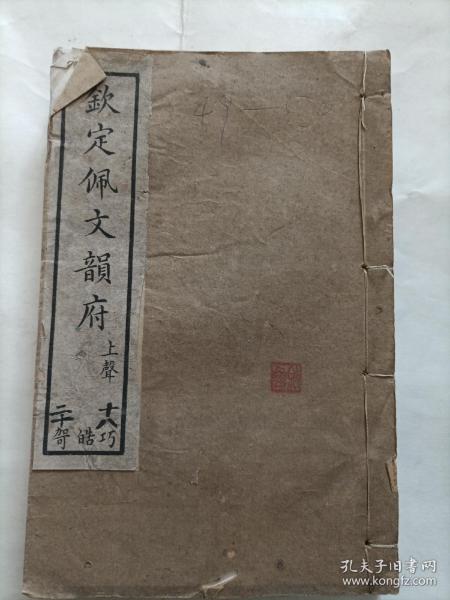 欽定佩文韻府
上聲
十八巧
皓
二十哿
49-
孔夫子旧书网
www.kongfz.com